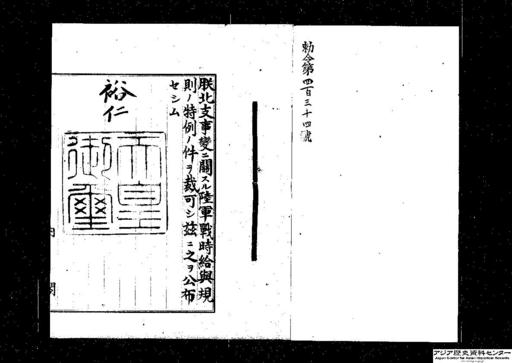 勅令第四百三十四號
朕北支事變ニ關スル陸軍戰時給與規
則ノ特例ノ件ヲ裁可シ茲ニ之ヲ公布
セシム
裕仁
天皇
御璽
内閣
アジア歴史資料センター
Japan Center for Asian Historical Records